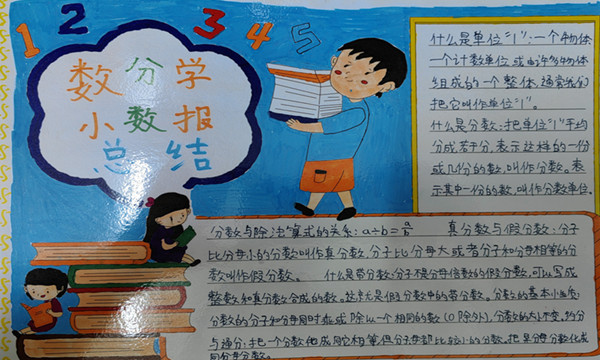 1 2 3 4 5
数分学
小数报
总结
什么是单位"1":一个物体
一个计数单位或由许多物体
组成的一个整体,通常我们
把它叫作单位"1"。
什么是分数:把单位"1"平均
分成若干分,表示这样的一份
或几份的数,叫作分数。表
示其中一份的数,叫作分数单位.
分数与除法算式的关系:a÷b=a/b 真分数与假分数:分子
比分母小的分数叫作真分数,分子比分母大或者分子和分母相等的分
数叫作假分数。 什么是带分数:分子不是分母倍数的假分数,可以写成
整数和真分数合成的数。这就是假分数中的带分数。分数的基本性质:
分数的分子和分母同时乘或除以一个相同的数(0除外),分数的大小不变。约分
与通分:把一个分数化成同它相等但分子分母都比较小的分数。把异分母分数化成
同分母分数。